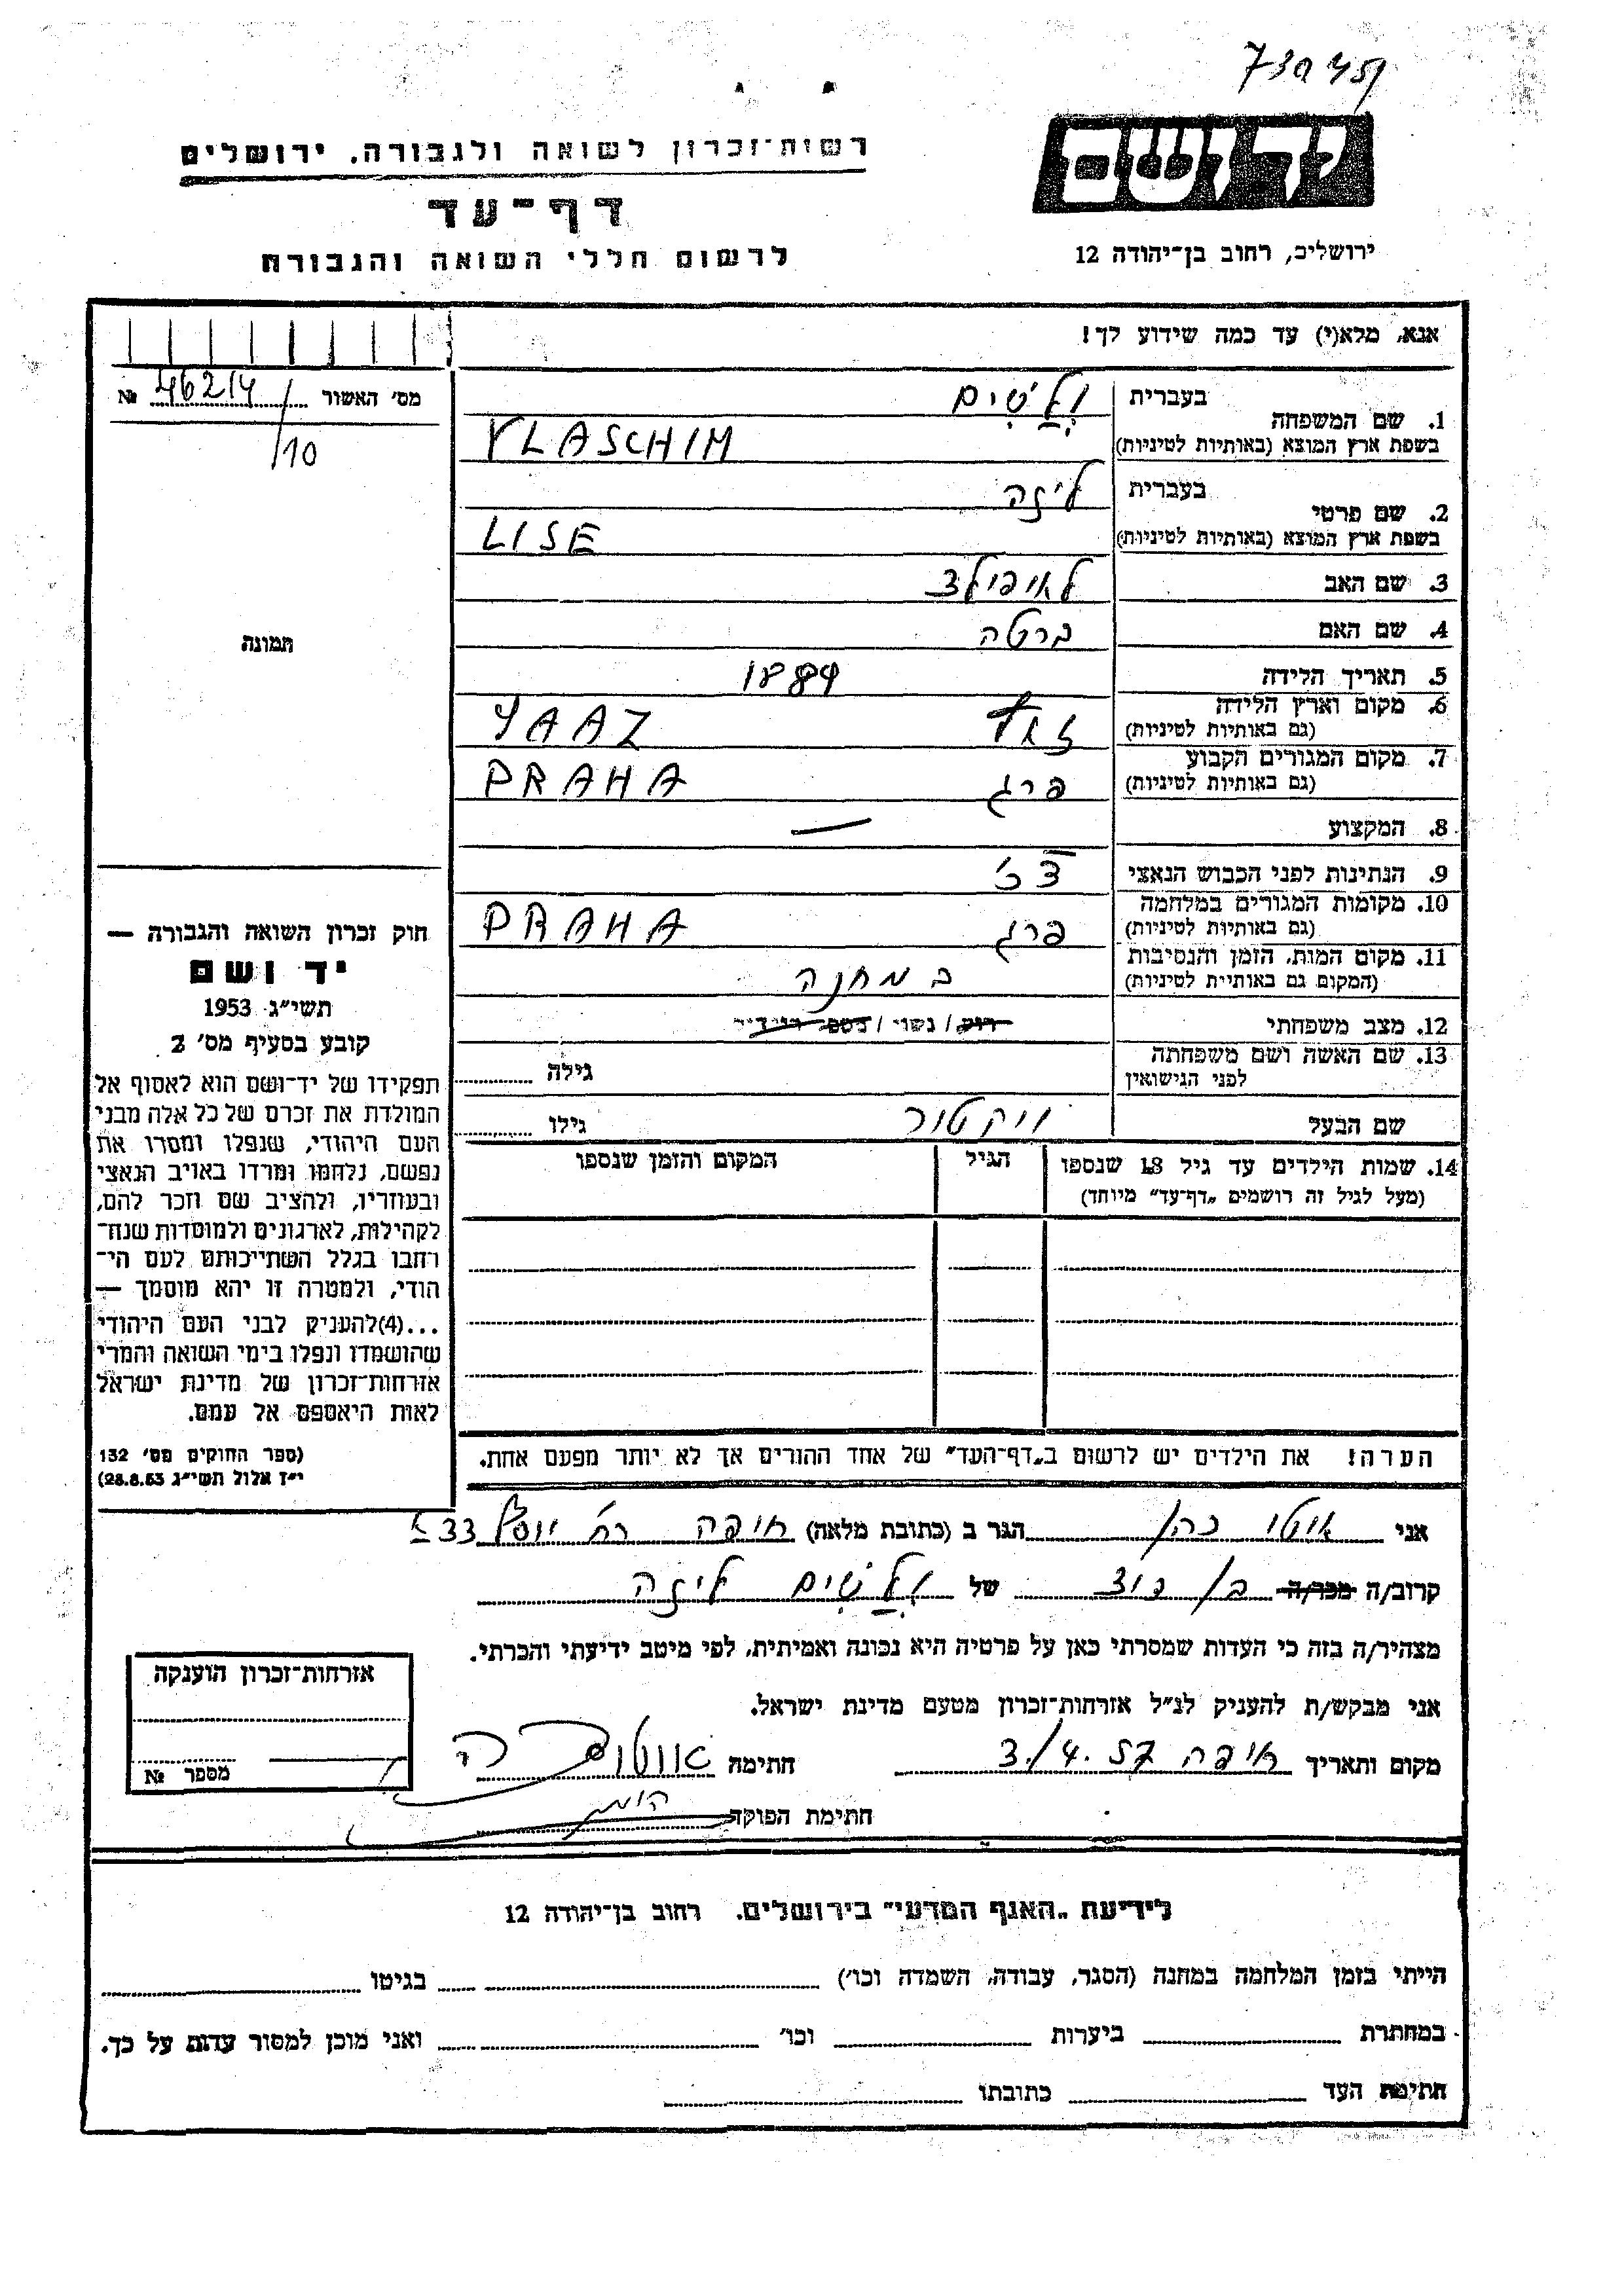 יד ושם
רשות־זכרון לשואה ולגבורה, ירושלים
דף־עד
לרשום חללי השואה והגבורה
ירושלים, רחוב בן־יהודה 12
אנא, מלא(י) עד כמה שידוע לך!
מס' האשור № 46214/10
תמונה
1. שם המשפחה
בעברית ולשים
בשפת ארץ המוצא (באותיות לטיניות) VLASCHIM
2. שם פרטי
בעברית ליזה
בשפת ארץ המוצא (באותיות לטיניות) LISE
3. שם האב
4. שם האם ברטה
5. תאריך הלידה 1884
6. מקום וארץ הלידה
(גם באותיות לטיניות) זאאז
7. מקום המגורים הקבוע
(גם באותיות לטיניות) פרג PRAHA
8. המקצוע —
9. הנתינות לפני הכבוש הנאצי צ'כ
10. מקומות המגורים במלחמה
(גם באותיות לטיניות) פרג PRAHA
11. מקום המות, הזמן והנסיבות
(המקום גם באותיות לטיניות) במחנה
12. מצב משפחתי רוק / נשוי /
13. שם האשה ושם משפחתה
לפני הנישואין
גילה
שם הבעל ויקטור גילו
14. שמות הילדים עד גיל 18 שנספו
(מעל לגיל זה רושמים „דף־עד" מיוחד)
הגיל
המקום והזמן שנספו
חוק זכרון השואה והגבורה —
יד ושם
תשי"ג 1953
קובע בסעיף מס' 2
תפקידו של יד־ושם הוא לאסוף אל
המולדת את זכרם של כל אלה מבני
העם היהודי, שנפלו ומסרו את
נפשם, נלחמו ומרדו באויב הנאצי
ובעוזריו, ולהציב שם וזכר להם,
לקהילות, לארגונים ולמוסדות שנח־
רבו בגלל השתייכותם לעם הי־
הודי, ולמטרה זו יהא מוסמך —
...(4)להעניק לבני העם היהודי
שהושמדו ונפלו בימי השואה והמרי
אזרחות־זכרון של מדינת ישראל
לאות היאספם אל עמם.
(ספר החוקים מס' 132
י"ז אלול תשי"ג 28.8.53)
הערה! את הילדים יש לרשום ב„דף־העד" של אחד ההורים אך לא יותר מפעם אחת.
אני אוטו כהן הגר ב (כתובת מלאה) חיפה רח' יוסף 33
קרוב/ה מכר/ה בן דוד של ולשים ליזה
מצהיר/ה בזה כי העדות שמסרתי כאן על פרטיה היא נכונה ואמיתית, לפי מיטב ידיעתי והכרתי.
אני מבקש/ת להעניק לנ"ל אזרחות־זכרון מטעם מדינת ישראל.
מקום ותאריך חיפה 3./4.57 חתימה
חתימת הפוקד
אזרחות־זכרון הוענקה
מספר №
לידיעת „האגף המדעי" בירושלים, רחוב בן־יהודה 12
הייתי בזמן המלחמה במחנה (הסגר, עבודה, השמדה וכו') בגיטו
במחתרת ביערות וכו' ואני מוכן למסור עדות על כך.
חתימת העד כתובתו